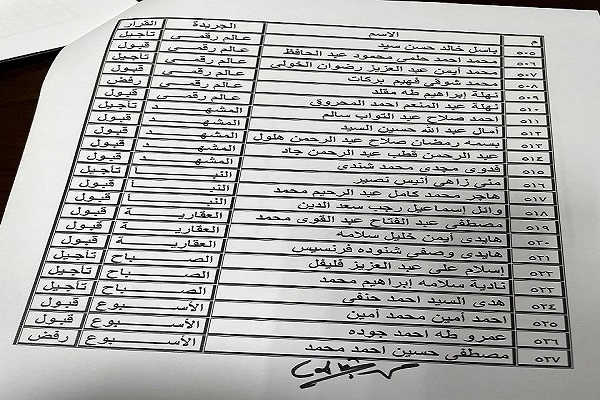 م الاسم الجريدة القرار
٥٠٥ باسل خالد حسن سيد عالم رقمى تأجيل
٥٠٦ محمد احمد حلمى محمود عبد الحافظ عالم رقمى قبول
٥٠٧ محمد أيمن عبد العزيز رضوان الخولي عالم رقمى تأجيل
٥٠٨ محمد شوقي فهيم بركات عالم رقمى قبول
٥٠٩ نهلة إبراهيم طه مقلد عالم رقمى رفض
٥١٠ نهلة عبد المنعم احمد المحروق عالم رقمى قبول
٥١١ احمد صلاح عبد التواب سالم المشهد تأجيل
٥١٢ أمال عبد الله حسين السيد المشهد قبول
٥١٣ بسمه رمضان صلاح عبد الرحمن هلول المشهد قبول
٥١٤ عبد الرحمن قطب عبد الرحمن جاد المشهد قبول
٥١٥ فدوى مجدى محمد شندى المشهد قبول
٥١٦ منى زاهي أنيس نصير النبأ تأجيل
٥١٧ هاجر محمد كامل عبد الرحيم محمد النبأ قبول
٥١٨ وائل إسماعيل رجب سعد الدين النبأ قبول
٥١٩ مصطفى عبد الفتاح عبد القوى محمد العقارية قبول
٥٢٠ هايدى أيمن خليل سلامه العقارية قبول
٥٢١ هايدى وصفي شنوده فرنسيس العقارية قبول
٥٢٢ إسلام على عبد العزيز فليفل الصباح تأجيل
٥٢٣ نادية سلامه إبراهيم محمد الصباح تأجيل
٥٢٤ هدى السيد احمد حنفي الصباح قبول
٥٢٥ احمد أمين محمد أمين الأسبوع قبول
٥٢٦ عمرو طه احمد جوده الأسبوع قبول
٥٢٧ مصطفى حسين احمد محمد الأسبوع رفض